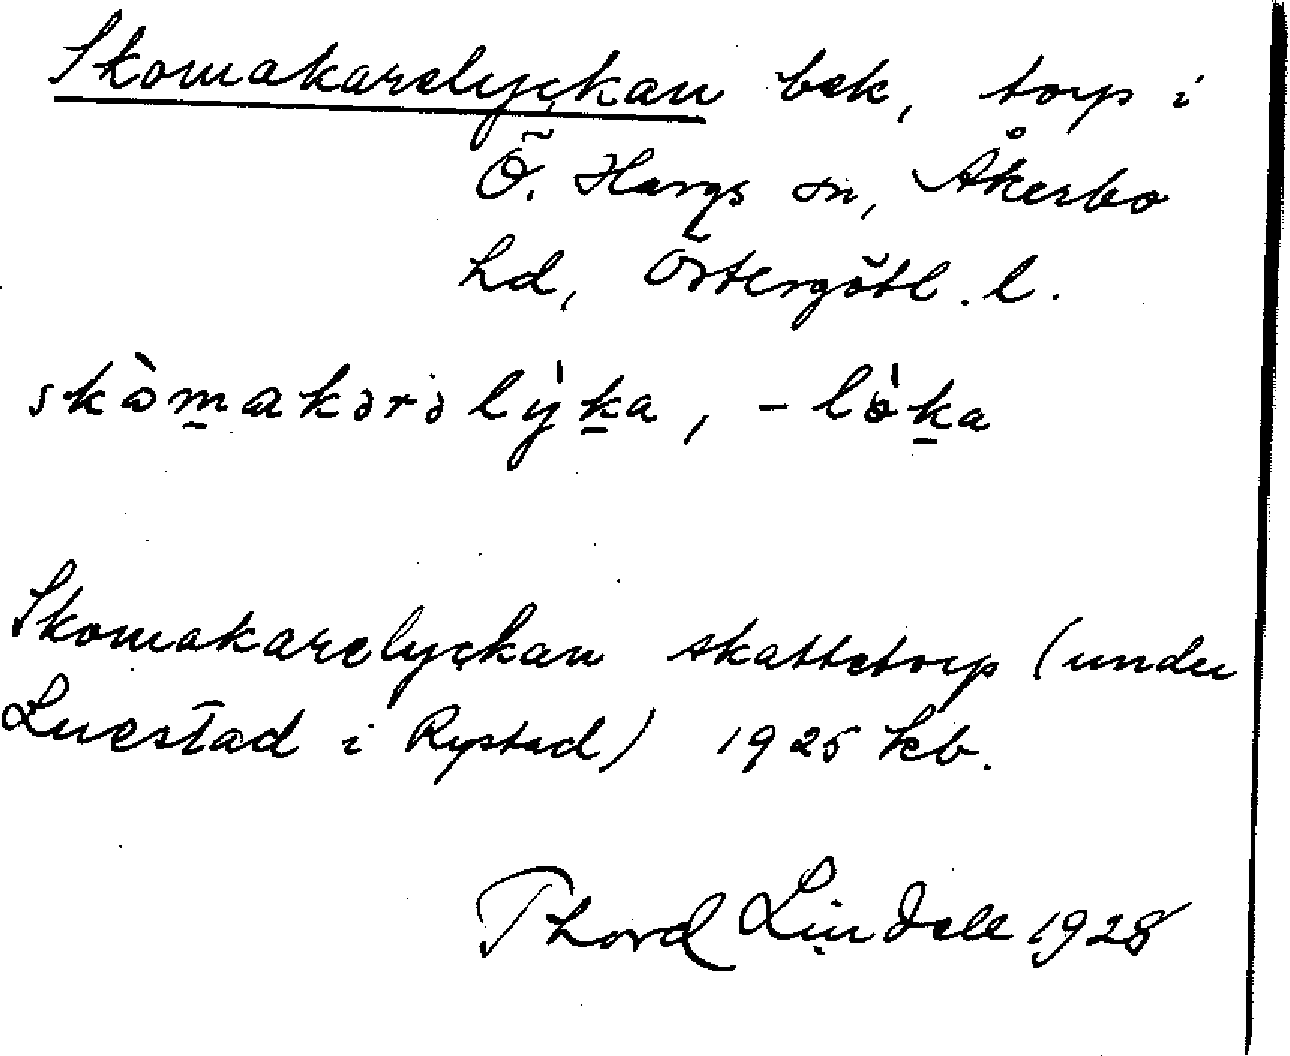 Skomakarelyckan bek, torp i
Ö. Hargs sn, Åkerbo
hd, Östergötl. l.
skòmakərəlỳka, -lòka
Skomakarelyckan skattetorp (under
Luestad i Rystad) 1925 kb.
Thord Lindell 1928